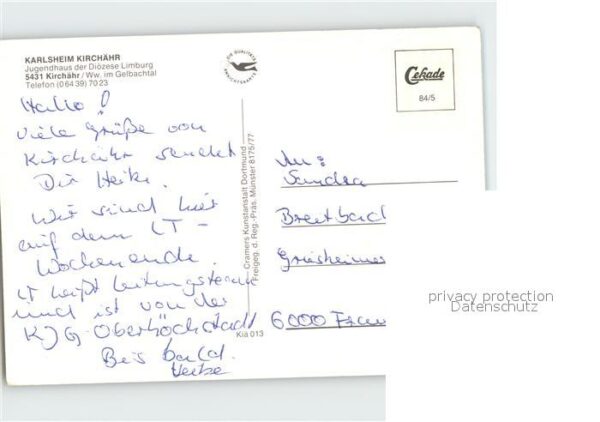 KARLSHEIM KIRCHÄHR
Jugendhaus der Diözese Limburg
5431 Kirchähr / Ww. im Gelbachtal
Telefon (0 64 39) 70 23
Hallo!
viele Grüße von
Kirchähr sendet
Dir Heike.
Wir sind hier
auf dem LT-
Wochenende.
LT heißt Leitungsteam
und ist von der
KJG-Oberhöchstadt
Bis bald.
Heike
DIE QUALITÄTS
ANSICHTSKARTE
Cramers Kunstanstalt Dortmund
Freigeg. d. Reg.-Präs. Münster 8175/77
Kia 013
Cekade
84/5
An:
Sandra
Breitbach
Griesheimer
6000 Fran
privacy protection
Datenschutz